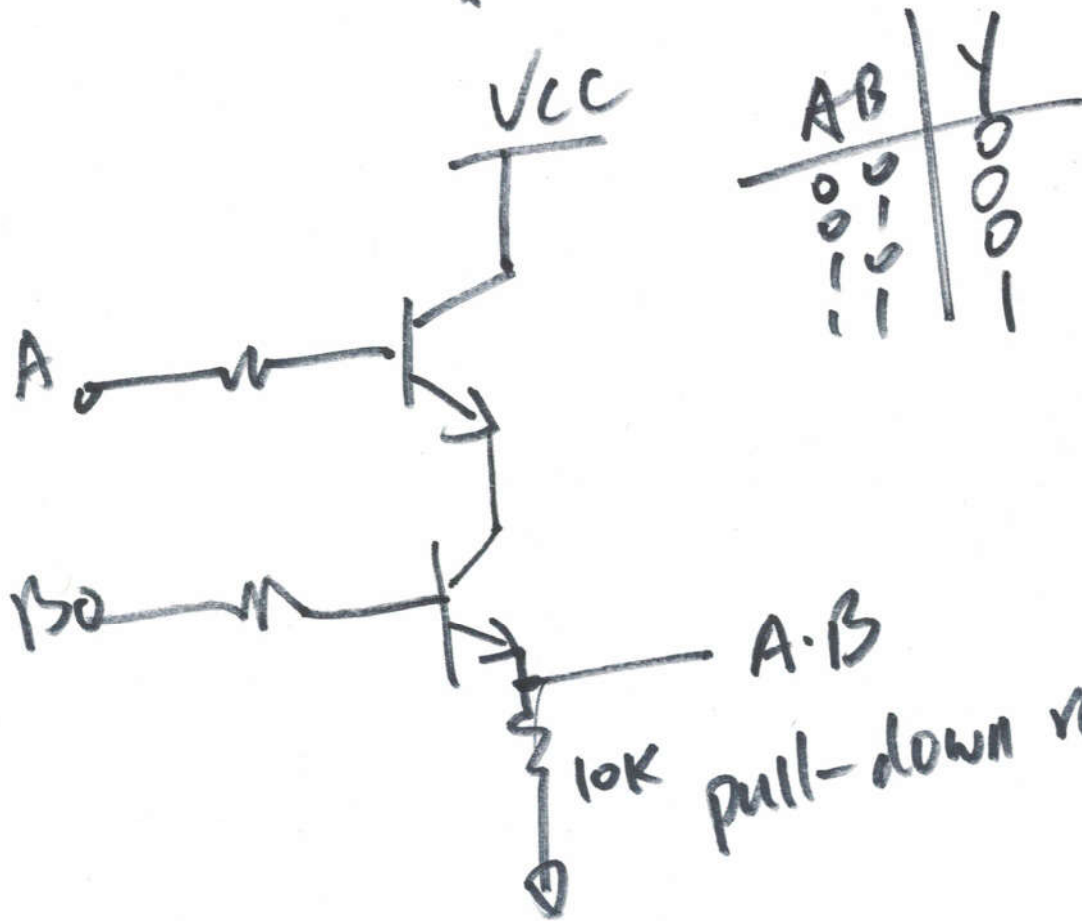 VCC
A B Y
0 0 0
0 1 0
1 0 0
1 1 1
A
B
A·B
10K
pull-down